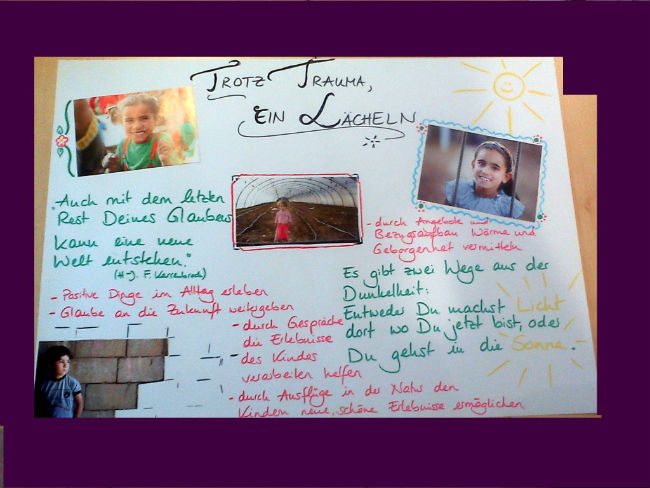 Trotz Trauma,
Ein Lächeln
"Auch mit dem letzten
Rest Deines Glaubens
Kann eine neue
Welt entstehen."
(H-J. F. Karrenbrock)
- Positive Dinge im Alltag erleben
- Glaube an die Zukunft weitergeben
- durch Angebote und
Bezugsaufbau Wärme und
Geborgenheit vermitteln
Es gibt zwei Wege aus der
Dunkelheit:
Entweder Du machst Licht
dort wo Du jetzt bist, oder
Du gehst in die Sonne.
- durch Gespräche
die Erlebnisse
des Kindes
verarbeiten helfen
- durch Ausflüge in der Natur den
Kindern neue, schöne Erlebnisse ermöglichen